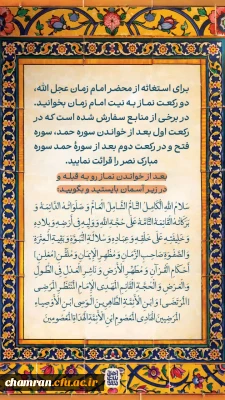 برای استغاثه از محضر امام زمان عجل الله،
دو رکعت نماز به نیت امام زمان بخوانید.
در برخی از منابع سفارش شده است که در
رکعت اول بعد از خواندن سوره حمد، سوره
فتح و در رکعت دوم بعد از سورۀ حمد سوره
مبارک نصر را قرائت نمایید.
بعد از خواندن نماز رو به قبله و
در زیر آسمان بایستید و بگویید:
سَلامُ اللهِ الْكامِلُ التّامُّ الشّامِلُ الْعامُّ وَ صَلَواتُهُ الدّائِمَةُ وَ
بَرَكاتُهُ الْقائِمَةُ التّامَّةُ عَلى حُجَّةِ اللهِ وَ وَلِيِّهِ فى اَرْضِهِ وَ بِلادِهِ
وَ خَليفَتِهِ عَلى خَلْقِهِ وَ عِبادِهِ وَ سُلالَةِ النُّبُوَّةِ وَ بَقِيَّةِ الْعِتْرَةِ
وَ الصَّفْوَةِ صاحِبِ الزَّمانِ وَ مُظْهِرِ الْإيمانِ وَ مُلَقِّنِ [مُعْلِنِ]
اَحْكامِ الْقُرْآنِ وَ مُطَهِّرِ الْأَرْضِ وَ ناشِرِ الْعَدْلِ فِى الطُّولِ
وَ الْعَرْضِ وَ الْحُجَّةِ الْقائِمِ الْمَهْدِىِّ الْإِمامِ الْمُنْتَظَرِ
الْمُرْتَضى وَ ابْنِ الْأَئِمَّةِ الطّاهِرينَ الْوَصِىِّ ابْنِ الْأَوْصِياءِ
الْمَرْضِيّينَ الْهادِى الْمَعْصُومِ ابْنِ الْأَئِمَّةِ الْهُداةِ الْمَعْصُومينَ
chamran.cfu.ac.ir